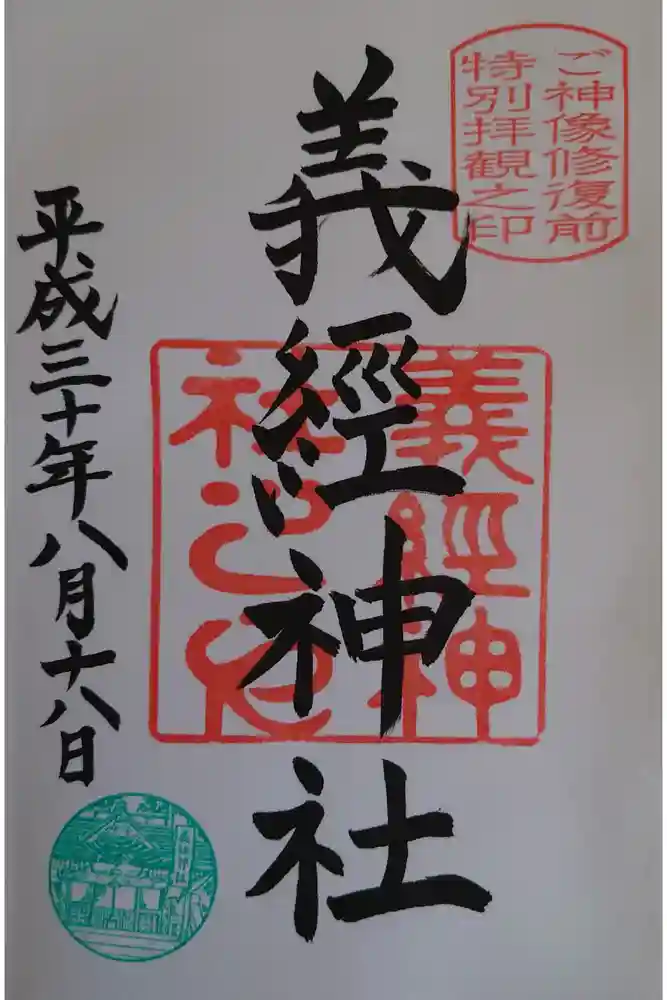 ご神像修復前
特別拝観之印
義經神社
義經神
社之印
平成三十年八月十八日
義経神社